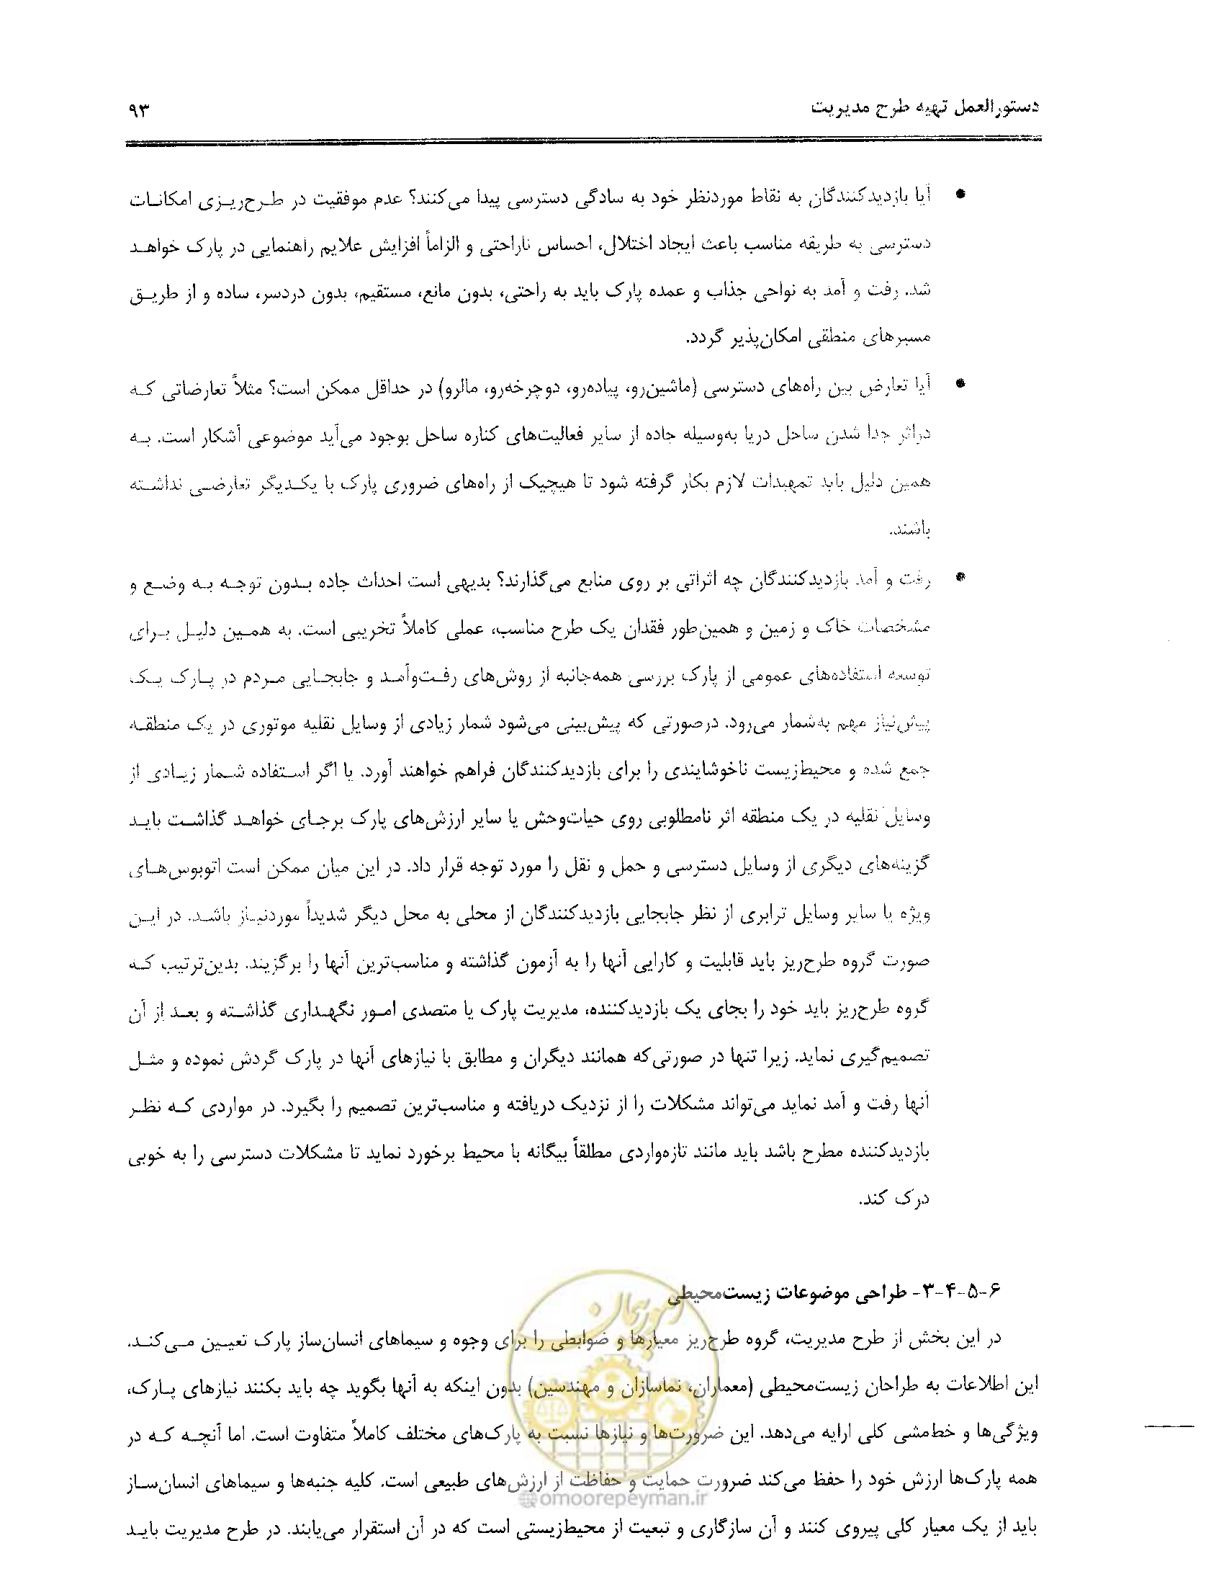 دستورالعمل تهیه طرح مدیریت
۹۳
● آیا بازدیدکنندگان به نقاط موردنظر خود به سادگی دسترسی پیدا می‌کنند؟ عدم موفقیت در طرح‌ریزی امکانات
دسترسی به طریقه مناسب باعث ایجاد اختلال، احساس ناراحتی و الزاماً افزایش علایم راهنمایی در پارک خواهد
شد. رفت و آمد به نواحی جذاب و عمده پارک باید به راحتی، بدون مانع، مستقیم، بدون دردسر، ساده و از طریق
مسیرهای منطقی امکان‌پذیر گردد.
● آیا تعارض بین راه‌های دسترسی (ماشین‌رو، پیاده‌رو، دوچرخه‌رو، مالرو) در حداقل ممکن است؟ مثلاً تعارضاتی که
دراثر جدا شدن ساحل دریا به‌وسیله جاده از سایر فعالیت‌های کناره ساحل بوجود می‌آید موضوعی آشکار است. به
همین دلیل باید تمهیدات لازم بکار گرفته شود تا هیچیک از راه‌های ضروری پارک با یکدیگر تعارضی نداشته
باشند.
● رفت و آمد بازدیدکنندگان چه اثراتی بر روی منابع می‌گذارند؟ بدیهی است احداث جاده بدون توجه به وضع و
مشخصات خاک و زمین و همین‌طور فقدان یک طرح مناسب، عملی کاملاً تخریبی است. به همین دلیل برای
توسعه استفاده‌های عمومی از پارک بررسی همه‌جانبه از روش‌های رفت‌وآمد و جابجایی مردم در پارک یک
پیش‌نیاز مهم به‌شمار می‌رود. درصورتی که پیش‌بینی می‌شود شمار زیادی از وسایل نقلیه موتوری در یک منطقه
جمع شده و محیط‌زیست ناخوشایندی را برای بازدیدکنندگان فراهم خواهند آورد. یا اگر استفاده شمار زیادی از
وسایل نقلیه در یک منطقه اثر نامطلوبی روی حیات‌وحش یا سایر ارزش‌های پارک برجای خواهد گذاشت باید
گزینه‌های دیگری از وسایل دسترسی و حمل و نقل را مورد توجه قرار داد. در این میان ممکن است اتوبوس‌های
ویژه یا سایر وسایل ترابری از نظر جابجایی بازدیدکنندگان از محلی به محل دیگر شدیداً موردنیاز باشد. در این
صورت گروه طرح‌ریز باید قابلیت و کارایی آنها را به آزمون گذاشته و مناسب‌ترین آنها را برگزیند. بدین‌ترتیب که
گروه طرح‌ریز باید خود را بجای یک بازدیدکننده، مدیریت پارک یا متصدی امور نگهداری گذاشته و بعد از آن
تصمیم‌گیری نماید. زیرا تنها در صورتی‌که همانند دیگران و مطابق با نیازهای آنها در پارک گردش نموده و مثل
آنها رفت و آمد نماید می‌تواند مشکلات را از نزدیک دریافته و مناسب‌ترین تصمیم را بگیرد. در مواردی که نظر
بازدیدکننده مطرح باشد باید مانند تازه‌واردی مطلقاً بیگانه با محیط برخورد نماید تا مشکلات دسترسی را به خوبی
درک کند.
۶-۵-۴-۳- طراحی موضوعات زیست‌محیطی
در این بخش از طرح مدیریت، گروه طرح‌ریز معیارها و ضوابطی را برای وجوه و سیماهای انسان‌ساز پارک تعیین می‌کند.
این اطلاعات به طراحان زیست‌محیطی (معماران، نماسازان و مهندسین) بدون اینکه به آنها بگوید چه باید بکنند نیازهای پارک،
ویژگی‌ها و خط‌مشی کلی ارایه می‌دهد. این ضرورت‌ها و نیازها نسبت به پارک‌های مختلف کاملاً متفاوت است. اما آنچه که در
همه پارک‌ها ارزش خود را حفظ می‌کند ضرورت حمایت و حفاظت از ارزش‌های طبیعی است. کلیه جنبه‌ها و سیماهای انسان‌ساز
باید از یک معیار کلی پیروی کنند و آن سازگاری و تبعیت از محیط‌زیستی است که در آن استقرار می‌یابند. در طرح مدیریت باید
امور پیمان
@omoorepeyman.ir